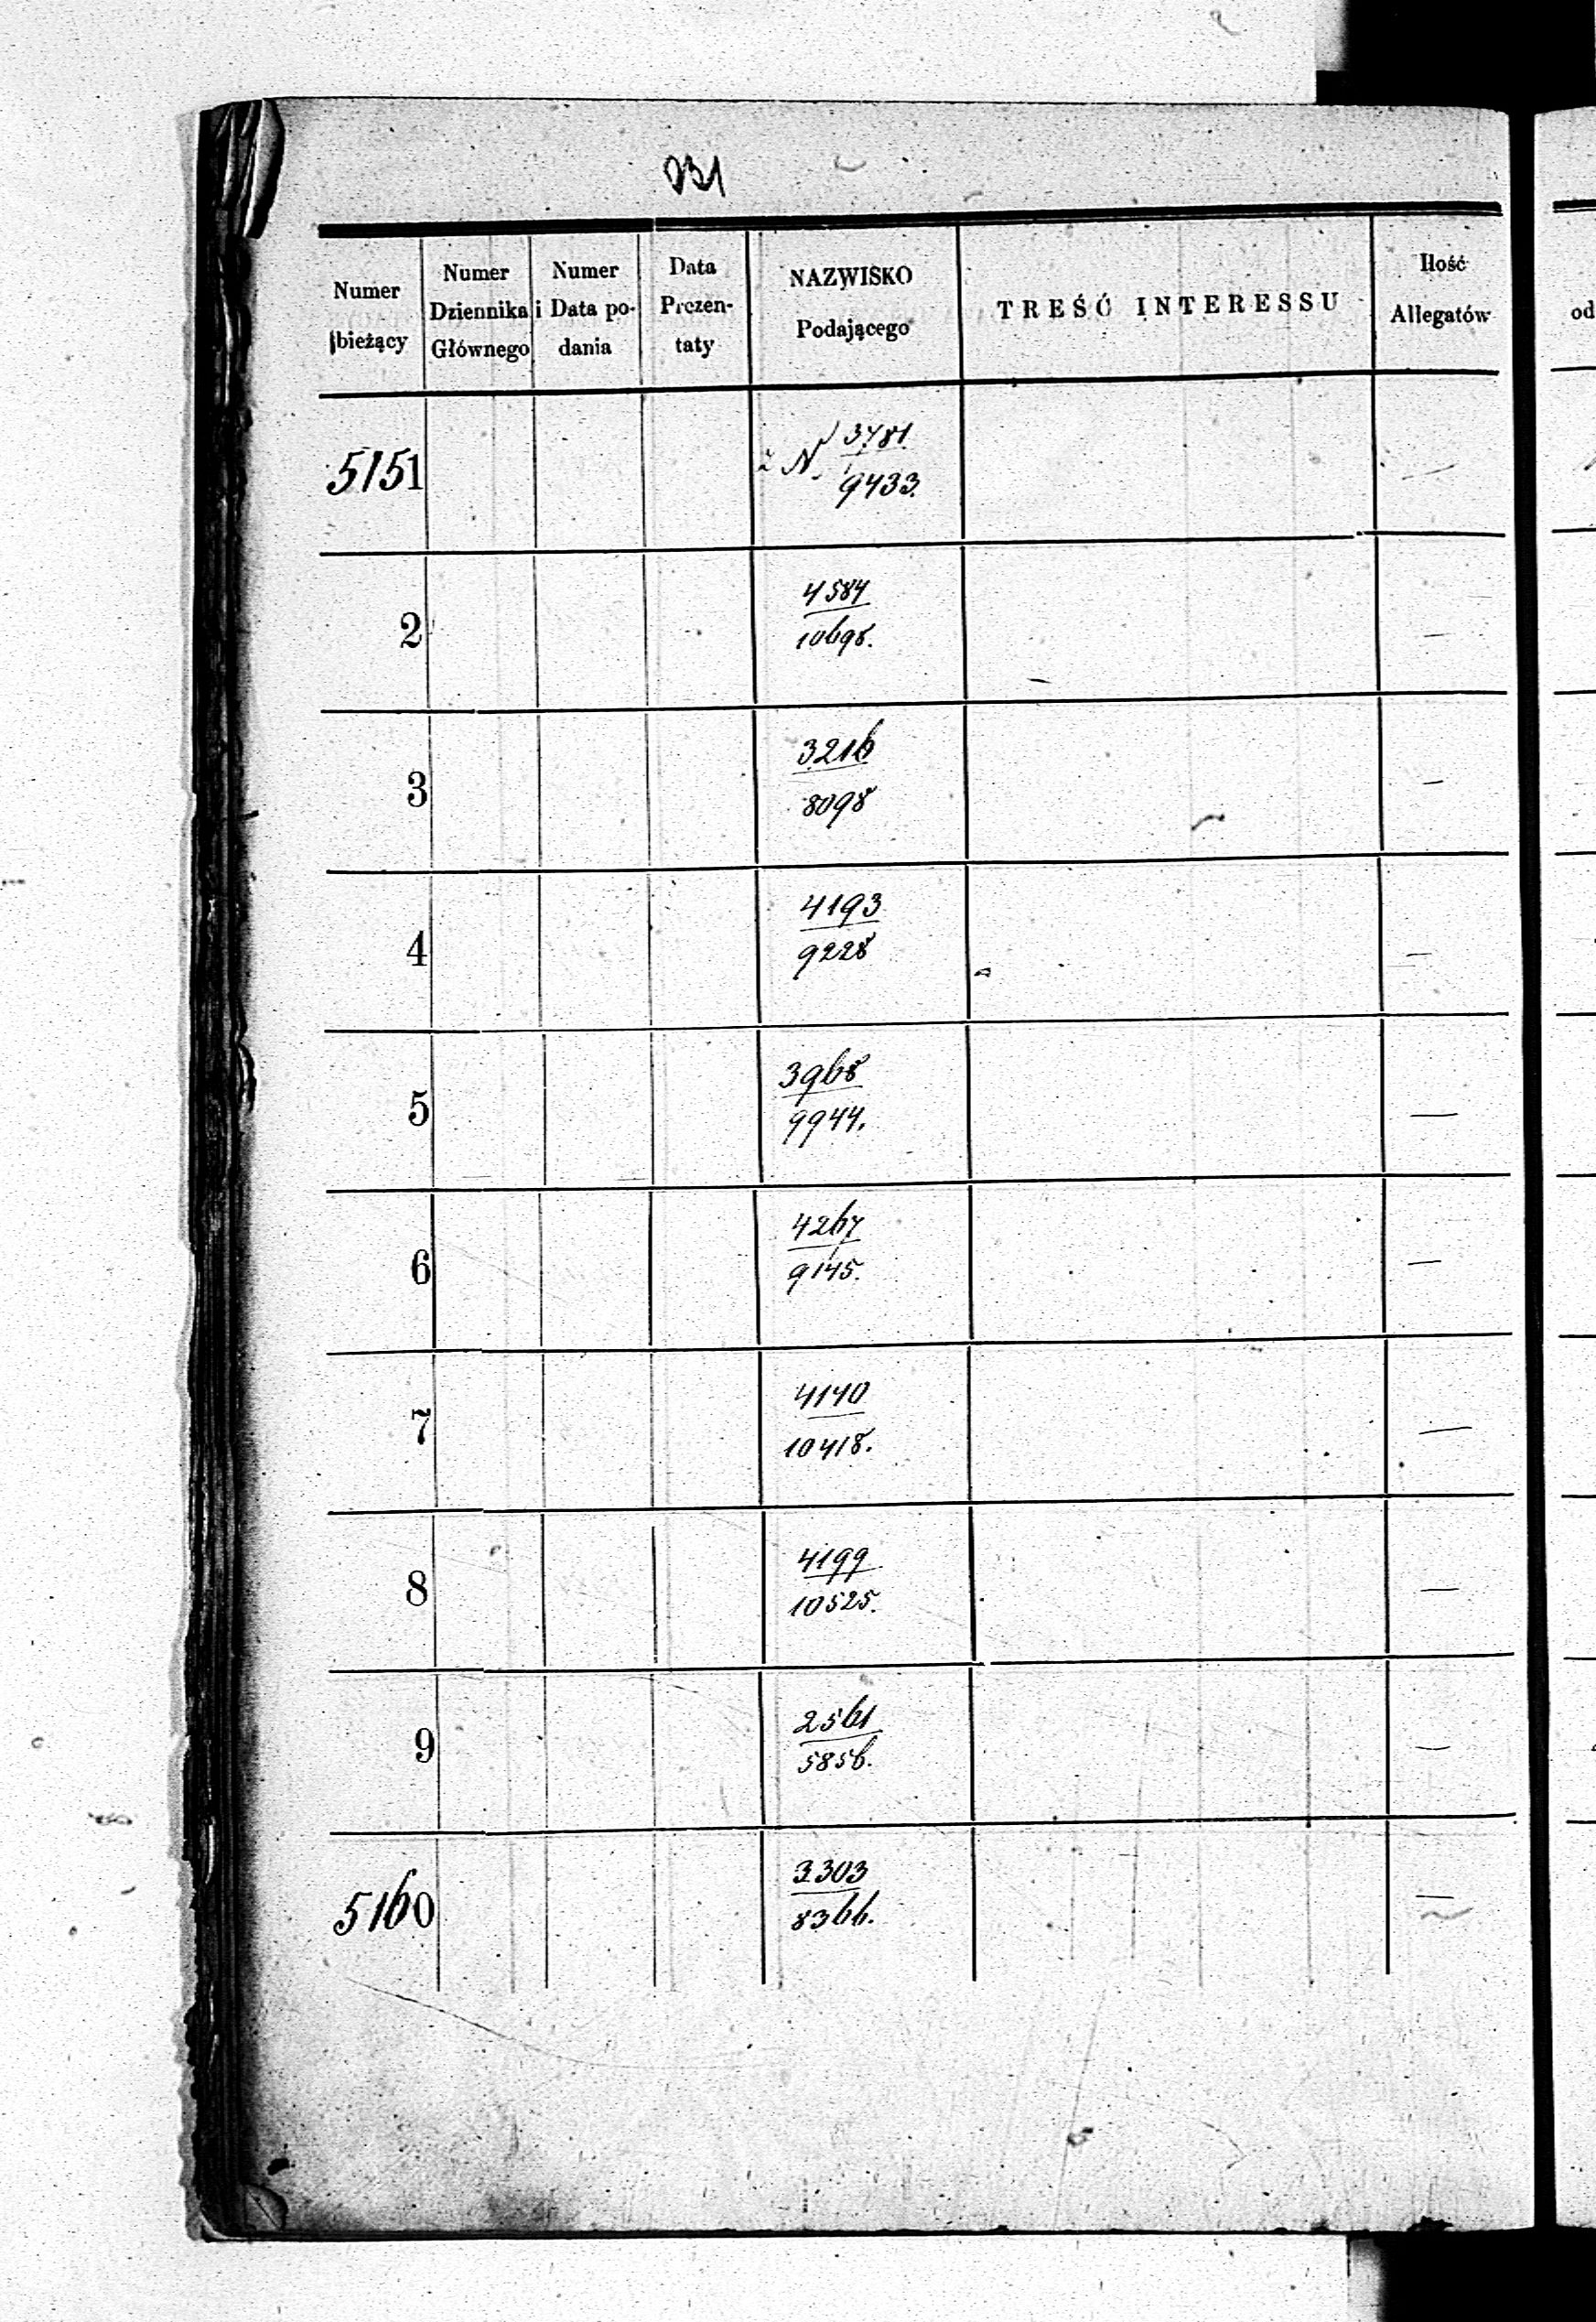 931
Numer bieżący
Numer Dziennika Głównego
Numer i Data podania
Data Prezentaty
NAZWISKO Podającego
TREŚĆ INTERESSU
Ilość Allegatów
od
5151
z N 3781
9433.
—
2
4584
10698.
—
3
3216
8098
—
4
4193
9228
—
5
3968
9944.
—
6
4267
9145.
—
7
4140
10418.
—
8
4199
10525.
—
9
2561
5856.
—
5160
3303
8366.
—